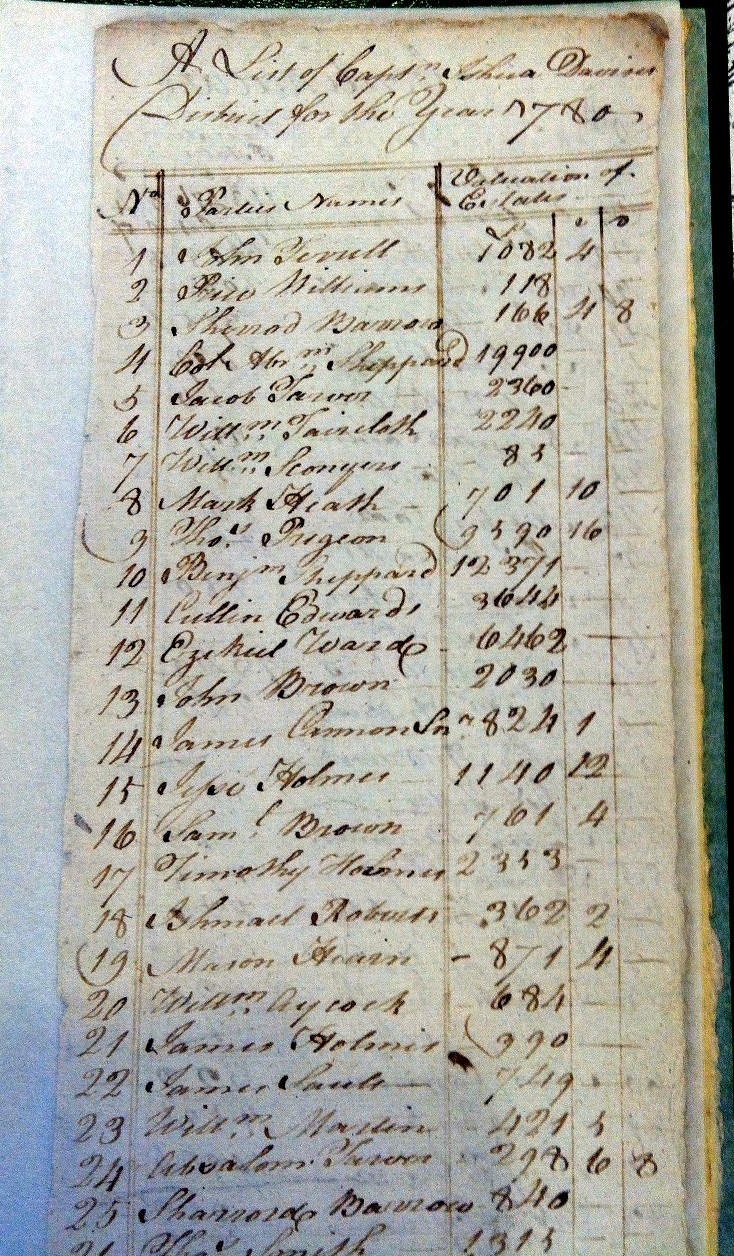 A List of Captn. Ashua Davises
District for the Year 1780
No. Parties Names Valuation of
Estates
£ s D
1 John Terrell 1082 4 —
2 Price Williams 118 —
3 Sherrod Barrow 166 4 8
4 Col. Abrm. Sheppard 19900 —
5 Jacob Tarver 2360 —
6 Willm. Faircloth 2240
7 Willm. Scongers 85 —
8 Mark Heath 701 10 —
9 Thos. Pigeon 9590 16 —
10 Benjm. Sheppard 12371 —
11 Cullin Edwards 3644 —
12 Ezekiel Ward 6462 —
13 John Brown 2030 —
14 James Cannon Snr. 824 1
15 Jesse Holmes 1140 12 —
16 Saml. Brown 761 4 —
17 Timothy Holmes 2353 —
18 Ishmael Roberts 362 2 —
19 Mason Hearn 871 4 —
20 Willm. Aycock 684 —
21 James Holmes 990 —
22 James Sauls 749 —
23 Willm. Martin 421 5
24 Absalom Tarver 298 6 8
25 Sharrord Barrow 840
Thos. Smith 1315